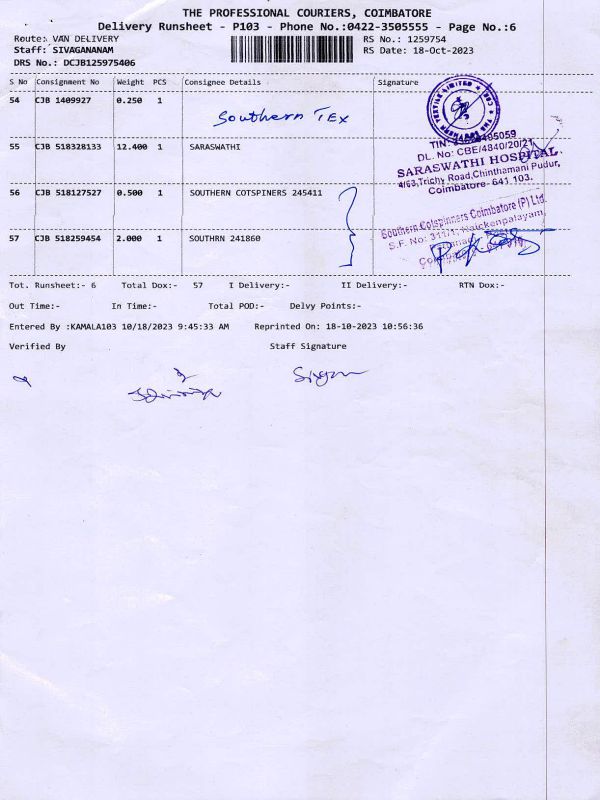 THE PROFESSIONAL COURIERS, COIMBATORE
Delivery Runsheet - P103 - Phone No.:0422-3505555 - Page No.:6
Route: VAN DELIVERY RS No.: 1259754
Staff: SIVAGANANAM RS Date: 18-Oct-2023
DRS No.: DCJB125975406
S No Consignment No Weight PCS Consignee Details Signature
54 CJB 1409927 0.250 1
Southern TEX
55 CJB 518328133 12.400 1 SARASWATHI
DL. No: CBE/4840/20/21
SARASWATHI HOSPITAL
4/63, Trichy Road, Chinthamani Pudur,
Coimbatore- 641 103.
56 CJB 518127527 0.500 1 SOUTHERN COTSPINERS 245411
Southern Cotspinners Coimbatore (P) Ltd.
S.F. No: 311/1, Naickenpalayam,
57 CJB 518259454 2.000 1 SOUTHRN 241860
Tot. Runsheet:- 6 Total Dox:- 57 I Delivery:- II Delivery:- RTN Dox:-
Out Time:- In Time:- Total POD:- Delvy Points:-
Entered By :KAMALA103 10/18/2023 9:45:33 AM Reprinted On: 18-10-2023 10:56:36
Verified By Staff Signature